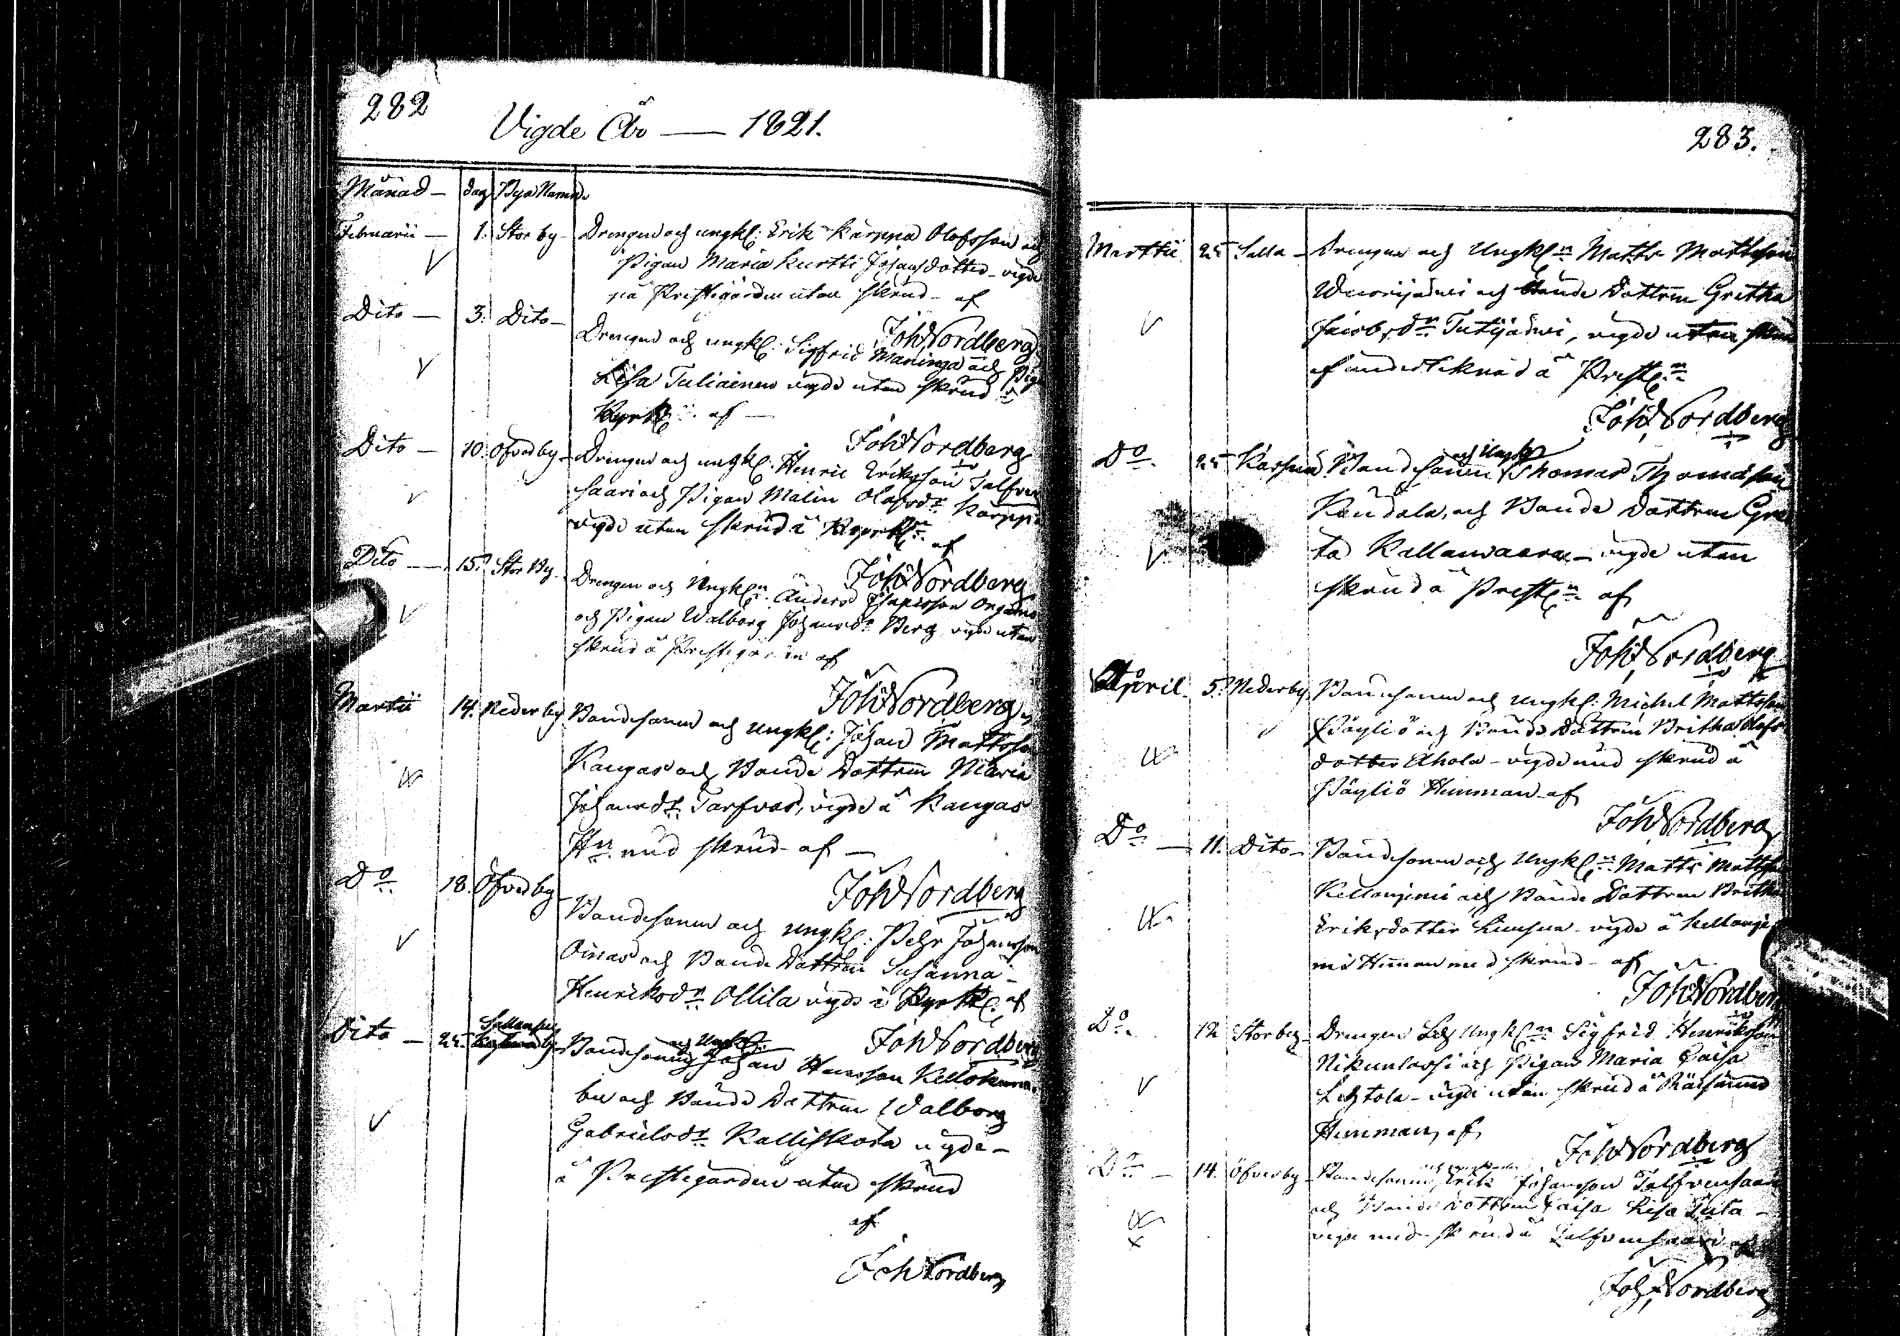 282
Vigde År — 1821.
Månad — dag Bya Namn
Februarii — 1. Storby — Drengen och ungkl: Erik Karppa Olofsson och
Pigan Maria Kurtti Johansdotter — vigde
på Prestegården utan skrud — af
Joh Nordberg
Dito — 3. Dito — Drengen och ungkl: Sigfrid Maninga och Pig
Lisa Tuliainen vigde utan skrud
Kyrk af —
Joh Nordberg
Dito — 10. Öfverby — Drengen och ungkl: Henric Eriksson Talfven
saari och Pigan Malin Olofsdr Karppa
vigde utan skrud i Kyrkn af
Joh Nordberg
Dito — 15. Stor By — Drengen och Ungkln Anders
och Pigan Walborg Johansdr Berg vigde utan
skrud å Prestegården af
Joh Nordberg
Martii 14. Nederby Bondesonen och Ungkl: Johan Mattsson
Kangas och Bonde Dottren Maria
Johansdr Tarfvas, vigde å Kangas
Hn. med skrud — af —
Joh Nordberg
Do 18. Öfverby Bondesonen och Ungkl: Pehr Johansson
Oinas och Bonde Dottren Susanna
Henriksdr Ollila vigde i Kyrk af
Joh Nordberg
Dito — 25. Bondesonen och Ungkl: Johan Hansson Kellokum
bu och Bonde Dottren Walborg
Gabrielsdr Kalliskota vigde —
å Prestegården utan skrud
af
Joh Nordberg
283.
Marttii 25 Salla — Drengen och Ungkln Matts Mattsson
Wuorijärvi och Bonde Dottren Gretha
Jacobsdr Tutijärvi, vigde utan skrud
af undertecknad å Prestn
Joh Nordberg
Do. 25 Bondesonen och Ungkl Thomas Thomasson
Kandala, och Bonde Dottren Gre
ta Kallanwaara — vigde utan
skrud å Prestn af
Joh Nordberg
April 5. Nederby Bondesonen och Ungkl: Michel Mattsson
Pöyliö och Bonde Dottren Britha Olofs
dotter Ahola — vigde med skrud å
Pöyliö Hemman af
Joh Nordberg
Do — 11. Dito — Bondesonen och Ungkln Matts Mattsson
Kellonjemi och Bonde Dottren Britha
Eriksdotter vigde å Kellonje
mi Hemman med skrud — af
Joh Nordberg
Do. 12 Storby — Drengen och Ungkln Sigfrid Henriksson
Nikunlassi och Pigan Maria Caisa
Lehtola — vigde utan skrud å
Hemman, af
Joh Nordberg
Do — 14. Öfverby — Bondesonen Erik Johansson Talfvensaari
och Bonde Dottren Caisa Lisa
vigde med skrud å Talfvensaari af
Joh Nordberg